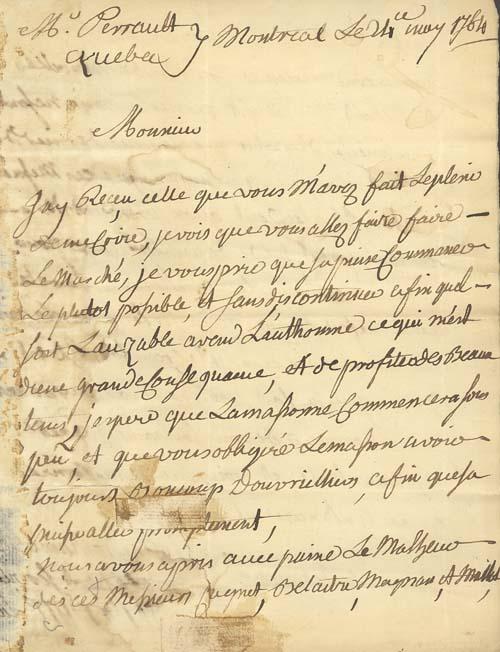 Mr. Perrault
Quebec
Montreal Le 24e may 1764
Monsieur
Jay Reçeu celle que vous M'avez fait Le plesir
de me , je vois que vous allez faire faire
Le Marché, je vous prie que sa puise Commancer
Le plutot posible, et sans discontinuer afin quel
soit Lauzable avend L'authonne ce qui m'est
d'une grande Consequance, et de profiter des Beaux
tems, j'espere que La massonne Commencera sous
peu, et que vous obligeré Le masson avoir
toujours Boucoup D'ouvrielliers, afin que sa
puise aller promptement,
nous avons apris avec paine Le Malheur
des ces Messieurs , Delaitre, Magnan, et Maillet,